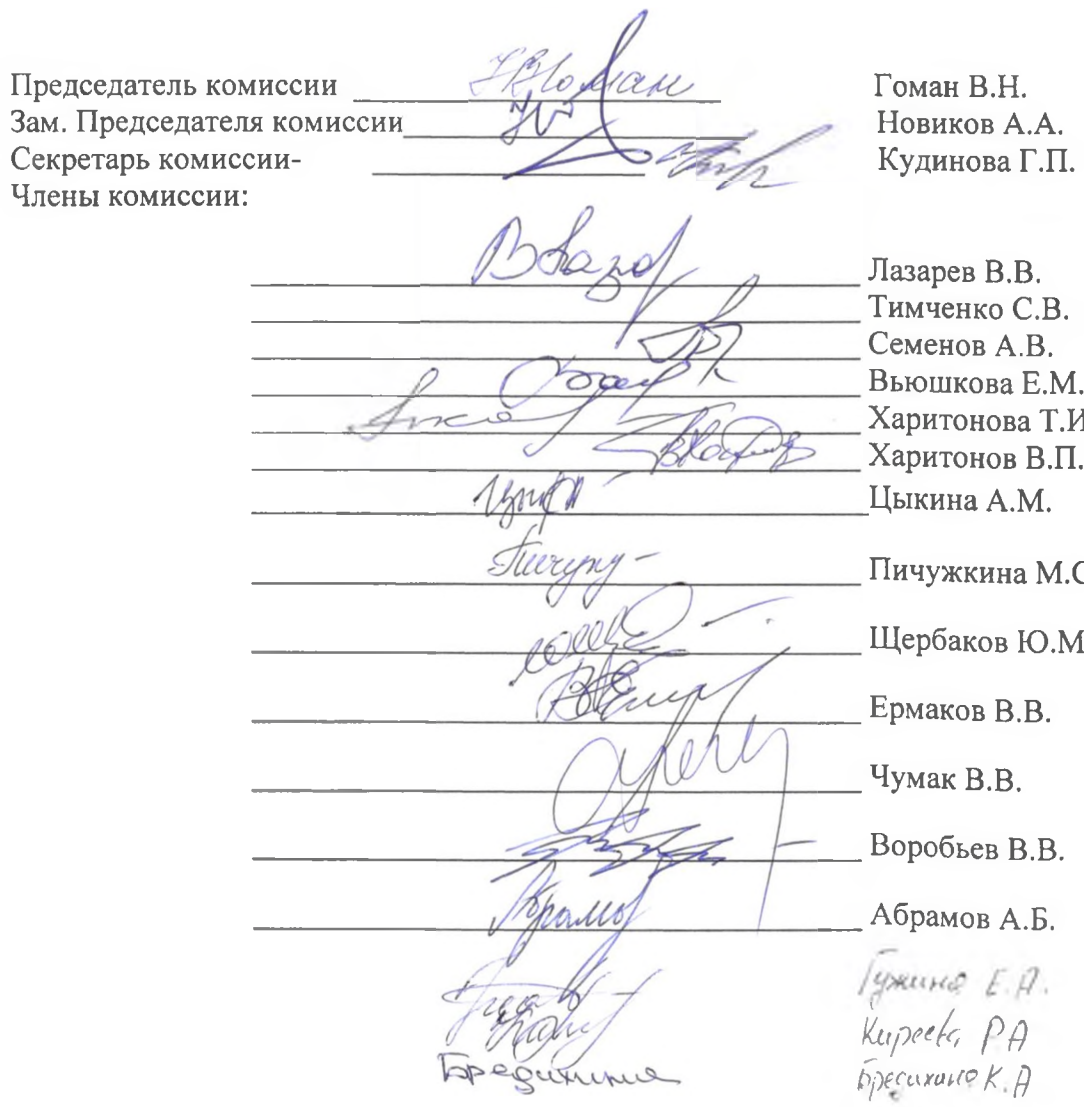 Председатель комиссии Гоман В.Н.
Зам. Председателя комиссии Новиков А.А.
Секретарь комиссии- Кудинова Г.П.
Члены комиссии:
Лазарев В.В.
Тимченко С.В.
Семенов А.В.
Вьюшкова Е.М.
Харитонова Т.И
Харитонов В.П.
Цыкина А.М.
Пичужкина М.С
Щербаков Ю.М
Ермаков В.В.
Чумак В.В.
Воробьев В.В.
Абрамов А.Б.
Гужина Е.А.
Киреева Р.А
Бредихина К.А